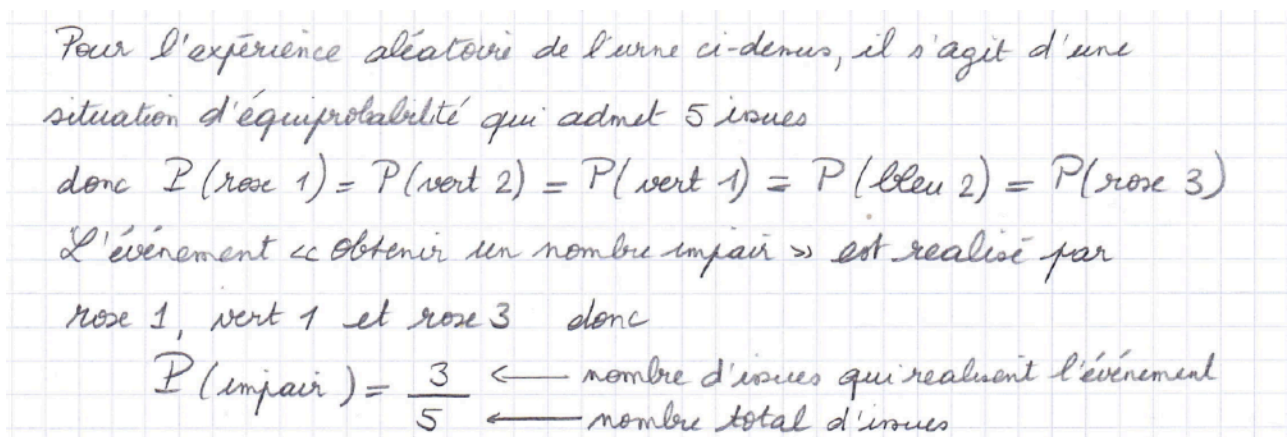 Pour l'expérience aléatoire de l'urne ci-dessus, il s'agit d'une
situation d'équiprobabilité qui admet 5 issues
donc P(rose 1) = P(vert 2) = P(vert 1) = P(bleu 2) = P(rose 3)
L'événement << obtenir un nombre impair >> est realisé par
rose 1, vert 1 et rose 3 donc
P(impair) = 3/5 ← nombre d'issues qui realisent l'événement
← nombre total d'issues